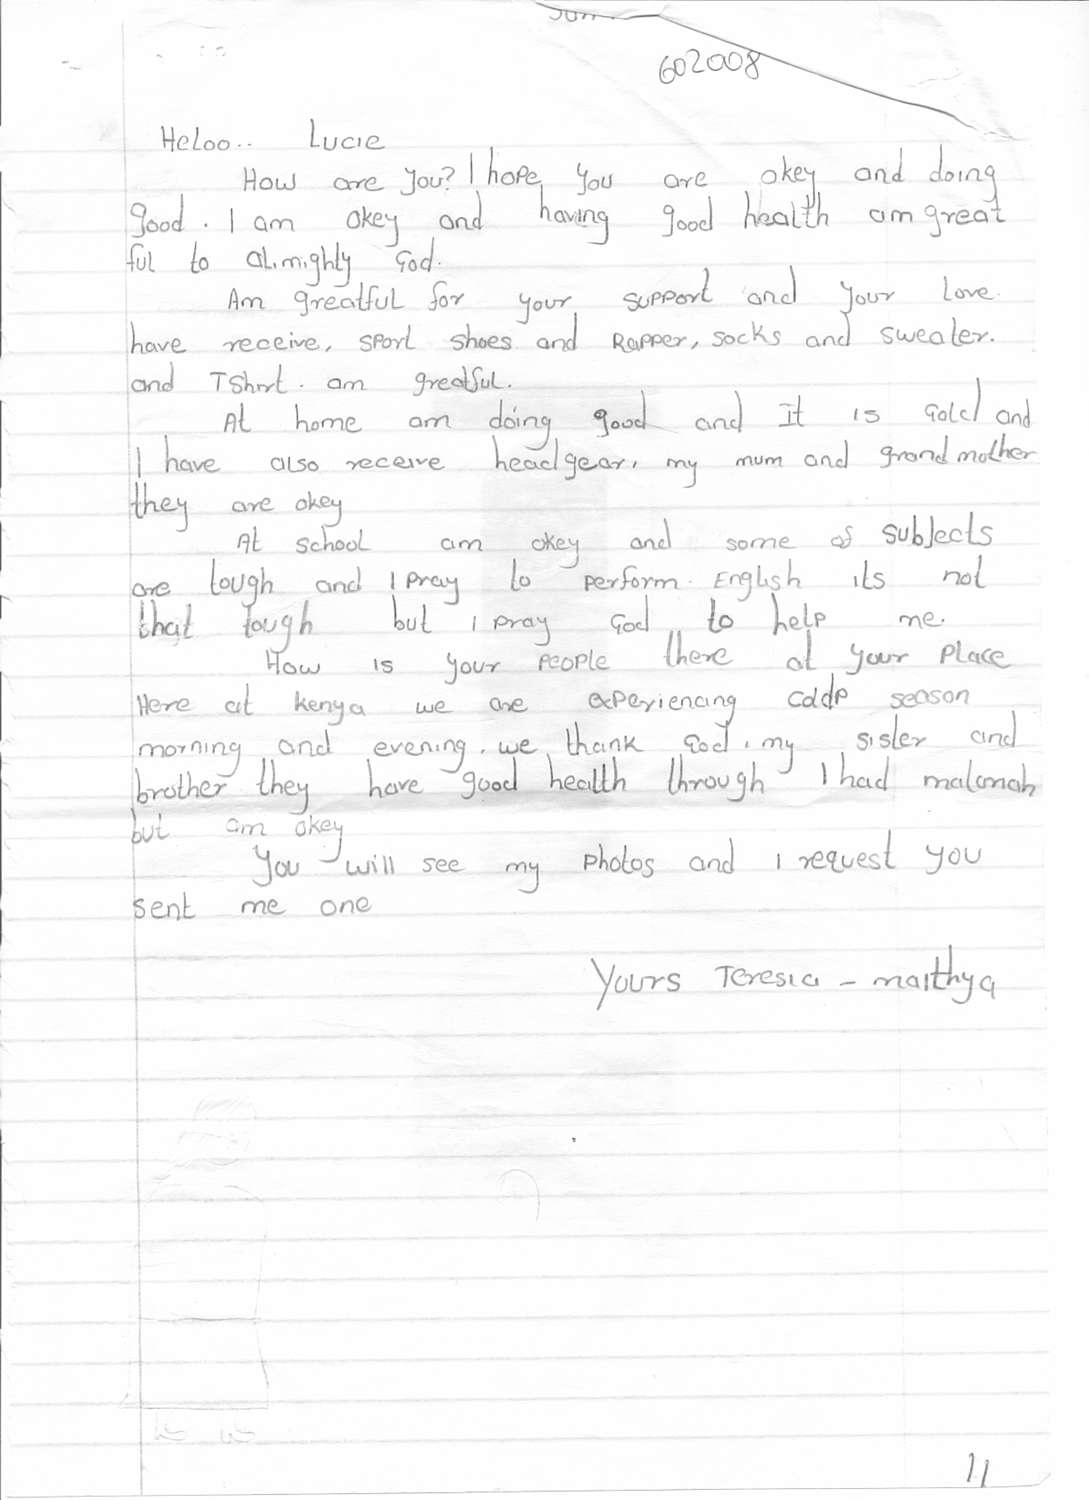 602008
Heloo.. Lucie
How are you? I hope you are okey and doing
good. I am okey and having good health am great
ful to almighty God.
Am greatful for your support and your love.
have receive, sport shoes and Rapper, socks and sweater.
and TShirt. am greatful.
At home am doing good and It is Gold and
I have also receive headgear, my mum and grandmother
they are okey
At school am okey and some of subjects
are tough and I pray to perform. English its not
that tough but I pray God to help me.
How is your people there at your place
Here at kenya we are experiencing season
morning and evening. we thank God. my sister and
brother they have good health through I had
but am okey
You will see my photos and I request you
sent me one
Yours Teresia - maithya
11